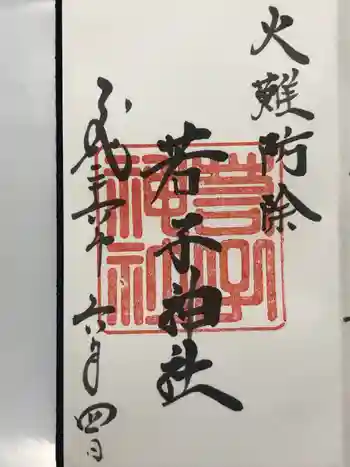 火難防除
若子神社
平成三十年六月四日
神社